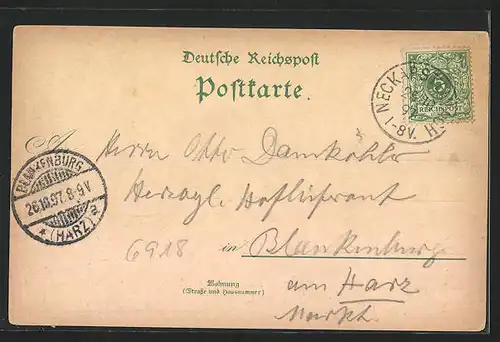 Deutsche Reichspost
Postkarte.
REICHSPOST
7-8V.
An
Herrn Otto Damköhler
Herzogl. Hoflieferant
BLANKENBURG
26.10.97.8-9V
* (HARZ) a
6918
in Blankenburg
am Harz
Markt.
Wohnung
(Straße und Hausnummer)